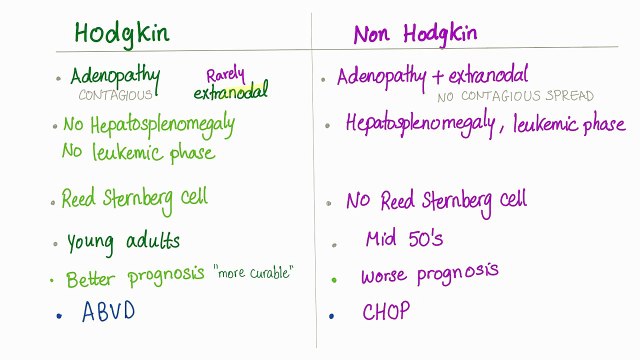 Hodgkin
Non Hodgkin
Adenopathy
CONTAGIOUS
Rarely
extranodal
Adenopathy + extranodal
NO CONTAGIOUS SPREAD
No Hepatosplenomegaly
No leukemic phase
Hepatosplenomegaly, leukemic phase
Reed Sternberg cell
No Reed Sternberg cell
Young adults
Mid 50's
Better prognosis "more curable"
worse prognosis
ABVD
CHOP